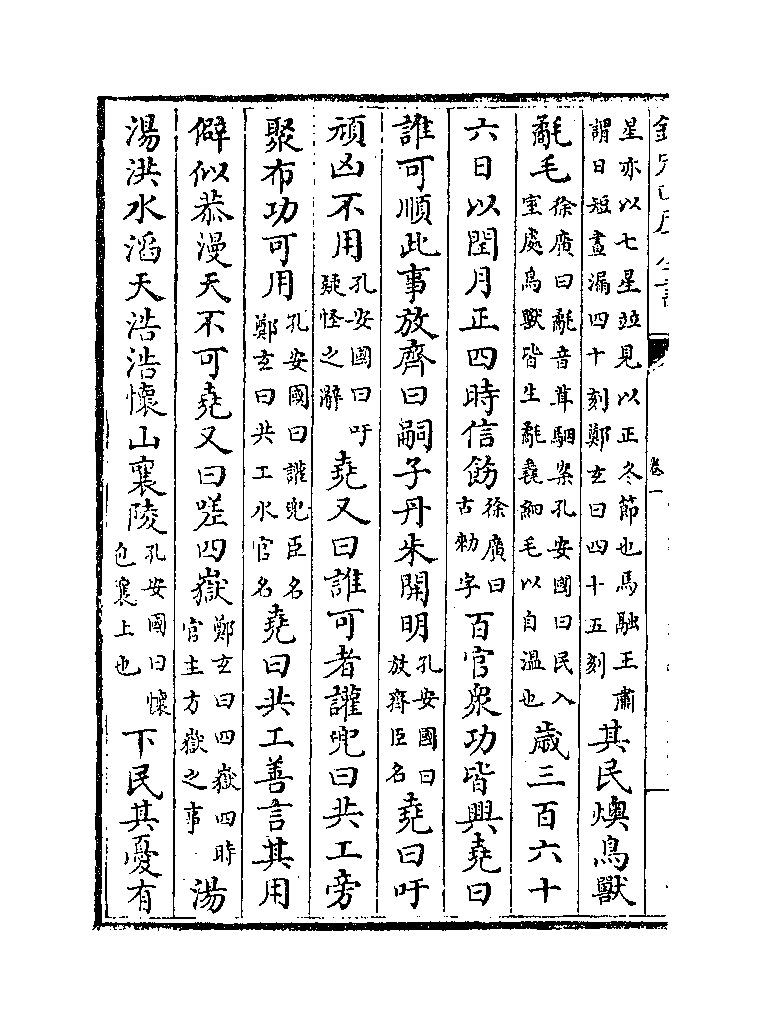 卷一
星亦以七星並見以正冬節也馬融王肅謂日短晝漏四十刻鄭玄曰四十五刻其民燠鳥獸
氄毛徐廣曰氄音茸駰案孔安國曰民入室處鳥獸皆生氄毳細毛以自溫也歲三百六十
六日以閏月正四時信飭徐廣曰古勑字百官眾功皆興堯曰
誰可順此事放齊曰嗣子丹朱開明孔安國曰放齊臣名堯曰吁
頑凶不用孔安國曰吁疑怪之辭堯又曰誰可者讙兜曰共工旁
聚布功可用孔安國曰讙兜臣名鄭玄曰共工水官名堯曰共工善言其用
僻似恭漫天不可堯又曰嗟四嶽鄭玄曰四嶽四時官主方嶽之事湯
湯洪水滔天浩浩懷山襄陵孔安國曰懷包襄上也下民其憂有